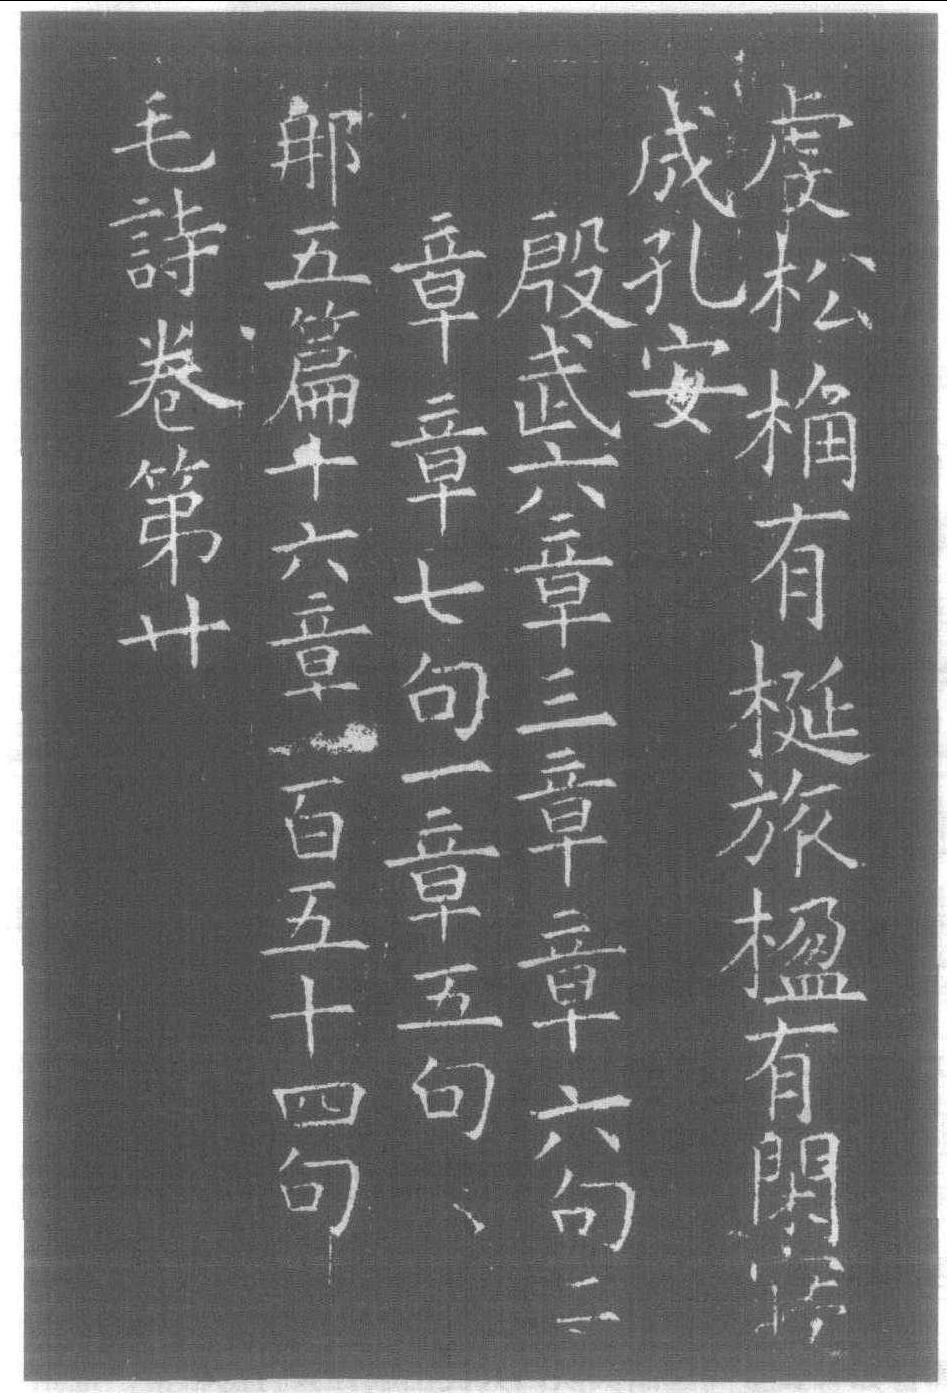 虔松桷有梴旅楹有閑寢
成孔安
殷武六章三章章六句二
章章七句一章五句
那五篇十六章一百五十四句
毛詩卷第廿